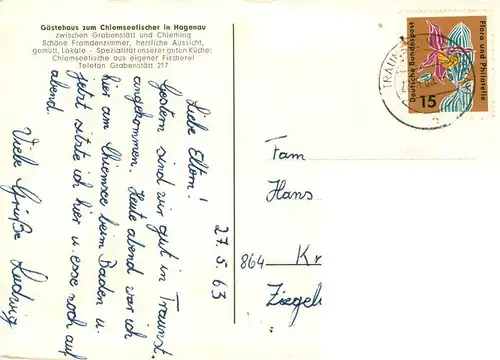 Gästehaus zum Chiemseefischer in Hagenau
zwischen Grabenstätt und Chieming
Schöne Fremdenzimmer, herrliche Aussicht,
gemütl. Lokale - Spezialität unserer guten Küche:
Chiemseefische aus eigener Fischerei
Telefon Grabenstätt 217
27.5.63
Liebe Eltern!
Gestern sind wir gut in Traunst.
angekommen. Heute abend war ich
hier am Chiemsee beim Baden u.
jetzt sitze ich hier u. esse noch auf
abend.
Viele Grüße Ludwig
Deutsche Bundespost
Flora und Philatelie
15
TRAUN
Fam
Hans
864 Kr
Ziegel